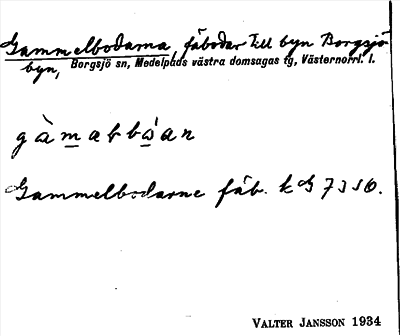 Gammelbodarna, fäbodar till byn Borgsjö
byn, Borgsjö sn, Medelpads västra domsagas tg, Västernorrl. l.
gàmabbáan
Gammelbodarne fäb. k G 7336.
VALTER JANSSON 1934